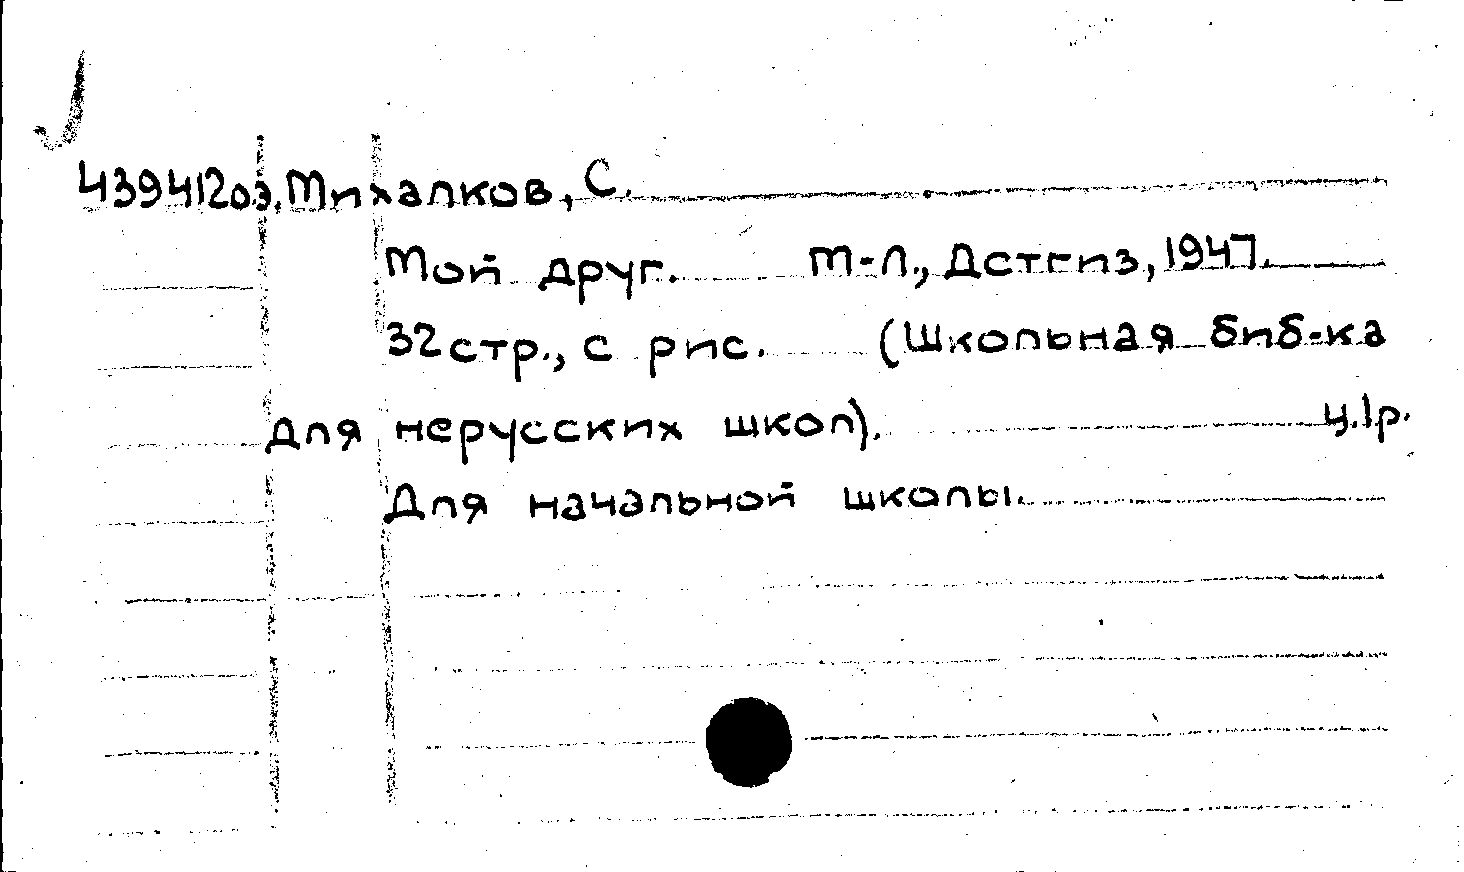 439412оэ. Михалков, С.
Мой друг. М-Л., Детгиз, 1947.
32 стр., с рис. (Школьная биб-ка
для нерусских школ). ц.1р.
Для начальной школы.